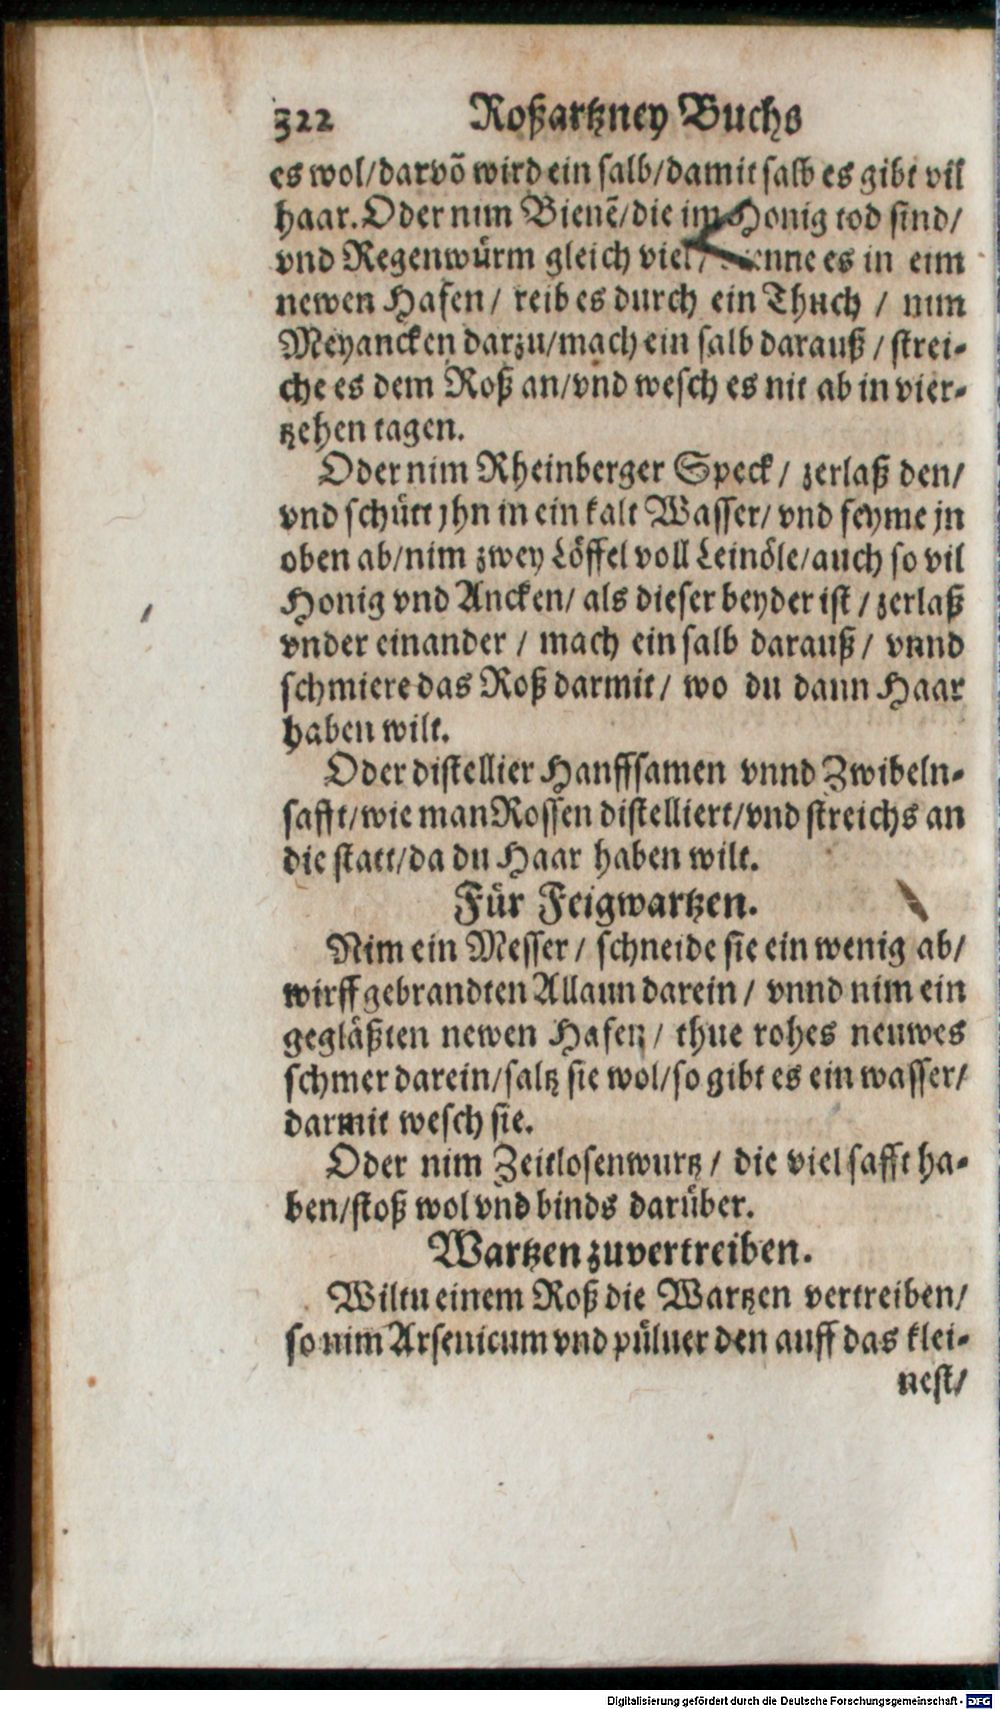 322 Roßartzney Buchs
es wol/darvõ wird ein salb/damit salb es gibt vil
haar. Oder nim Bienẽ/die im Honig tod sind/
vnd Regenwürm gleich viel/ es in eim
newen Hafen/ reib es durch ein Thuch / nim
Meyancken darzu/mach ein salb darauß / strei-
che es dem Roß an/vnd wesch es nit ab in vier-
tzehen tagen.
Oder nim Rheinberger Speck/ zerlaß den/
vnd schütt jhn in ein kalt Wasser/ vnd feyme jn
oben ab/nim zwey Löffel voll Leinöle/auch so vil
Honig vnd Ancken/ als dieser beyder ist / zerlaß
vnder einander / mach ein salb darauß/ vnnd
schmiere das Roß darmit/ wo du dann Haar
haben wilt.
Oder distellier Hanffsamen vnnd Zwibeln-
safft/wie man Rossen distelliert/vnd streichs an
die statt/da du Haar haben wilt.
Für Feigwartzen.
Nim ein Messer / schneide sie ein wenig ab/
wirff gebrandten Allaun darein / vnnd nim ein
gegläßten newen Hafen / thue rohes neuwes
schmer darein/saltz sie wol/so gibt es ein wasser/
darmit wesch sie.
Oder nim Zeitlosenwurtz / die viel safft ha-
ben/stoß wol vnd binds darüber.
Wartzen zuvertreiben.
Wiltu einem Roß die Wartzen vertreiben/
so nim Arsenicum vnd püluer den auff das klei-
nest/
Digitalisierung gefördert durch die Deutsche Forschungsgemeinschaft - DFG